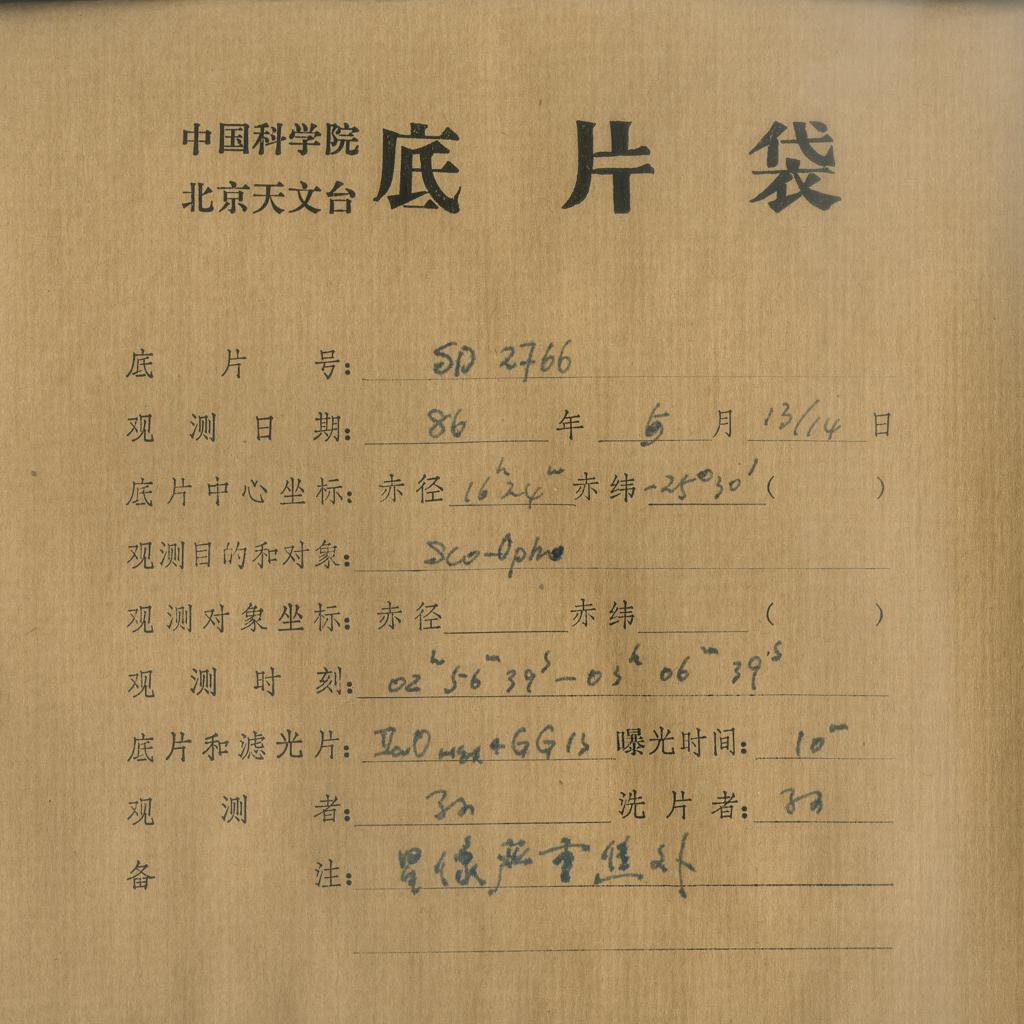 中国科学院
北京天文台
底片袋
底片号: SD 2766
观测日期: 86 年 5 月 13/14 日
底片中心坐标: 赤径 16h24m 赤纬 -25°30′ ( )
观测目的和对象: Sco-Oph
观测对象坐标: 赤径 赤纬 ( )
观测时刻: 02h56m39s — 03h06m39s
底片和滤光片: IIaO + GG13 曝光时间: 10m
观测者: 洗片者:
备注: 星像严重焦外